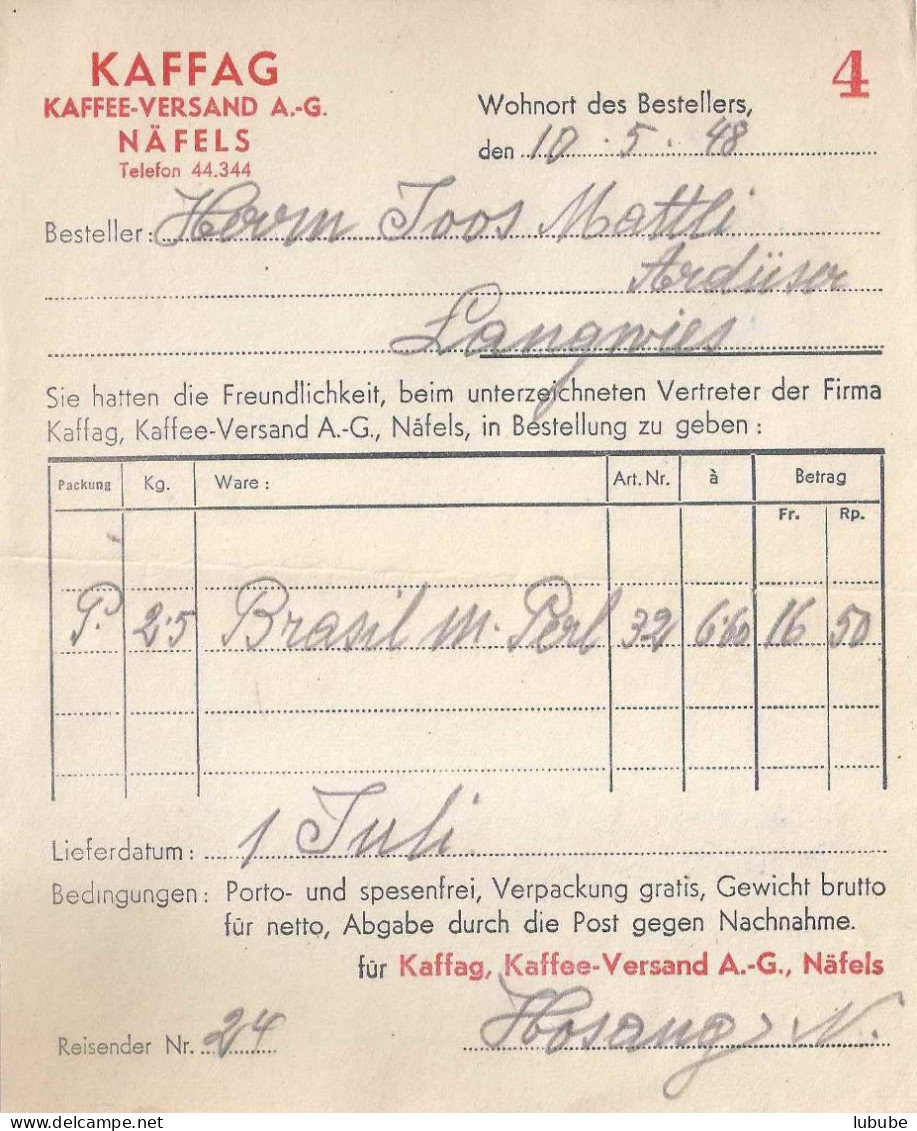 KAFFAG
KAFFEE-VERSAND A.-G.
NÄFELS
Telefon 44.344
4
Wohnort des Bestellers,
den 10.5.48
Besteller: Herrn Joos Mattli
Ardüser
Langwies
Sie hatten die Freundlichkeit, beim unterzeichneten Vertreter der Firma
Kaffag, Kaffee-Versand A.-G., Näfels, in Bestellung zu geben :
Packung Kg. Ware : Art. Nr. à Betrag
Fr. Rp.
P. 2.5 Brasil m. Perl 32 6.60 16 50
Lieferdatum : 1 Juli
Bedingungen : Porto- und spesenfrei, Verpackung gratis, Gewicht brutto
für netto, Abgabe durch die Post gegen Nachnahme.
für Kaffag, Kaffee-Versand A.-G., Näfels
Reisender Nr. 24 Hosang, N.
lubube
delcampe.net